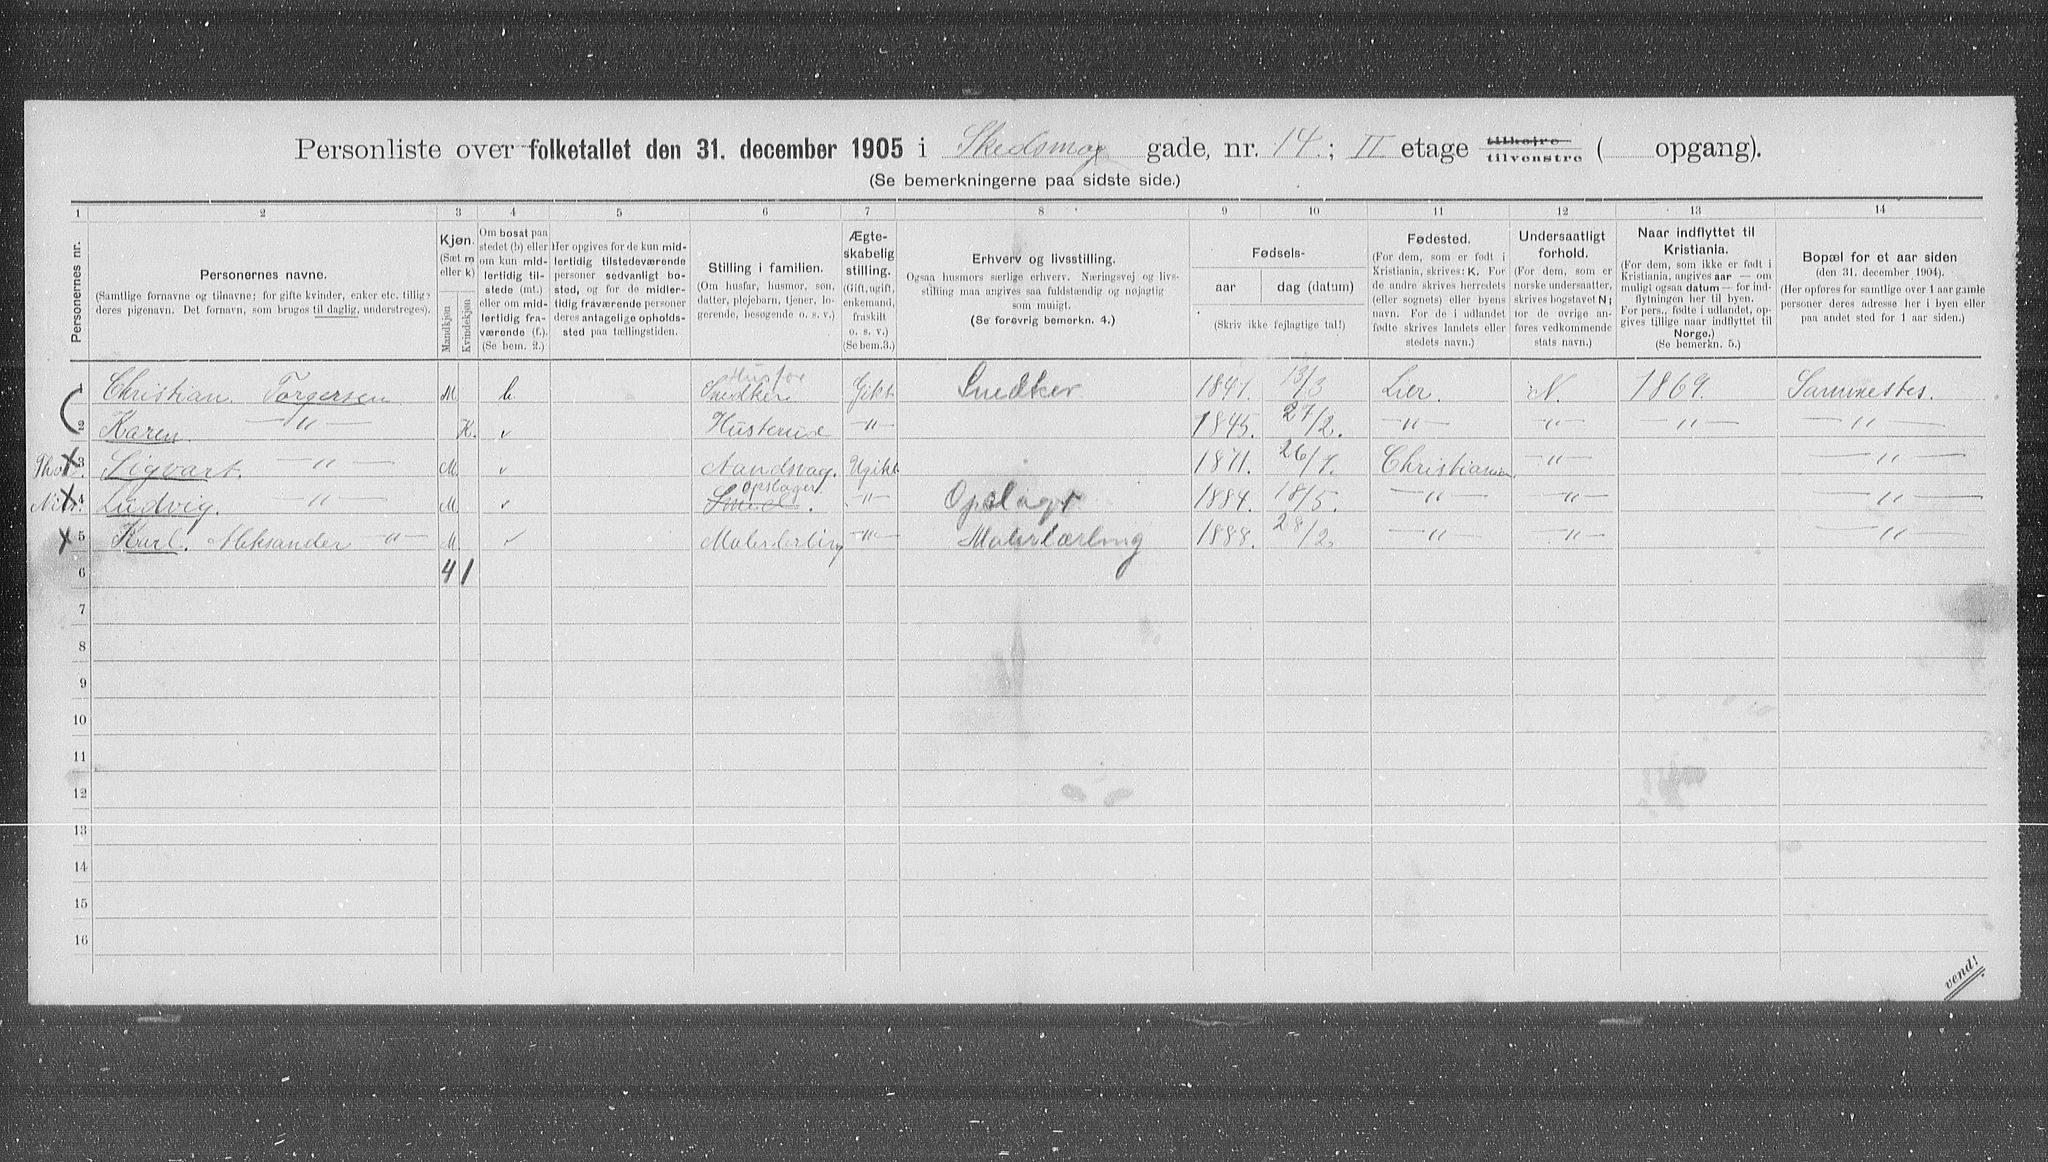 Personliste over folketallet den 31. december 1905 i Skedsmog gade, nr. 14.; II etage tilhøjre tilvenstre ( opgang).
(Se bemerkningerne paa sidste side.)
1 2 3 4 5 6 7 8 9 10 11 12 13 14
Personernes nr.
Personernes navne.
(Samtlige fornavne og tilnavne; for gifte kvinder, enker etc. tillige deres pigenavn. Det fornavn, som bruges til daglig, understreges).
Kjøn.
(Sæt m eller k)
Mandkjøn
Kvindekjøn
Om bosat paa stedet (b) eller om kun midlertidig tilstede (mt.) eller om midlertidig fraværende (f.).
(Se bem. 2.)
Her opgives for de kun midlertidig tilstedeværende personer sedvanlig bosted, og for de midlertidig fraværende personer deres antagelige opholdssted paa tællingstiden.
Stilling i familien.
(Om husfar, husmor, søn, datter, plejebarn, tjener, logerende, besøgende o. s. v.)
Ægteskabelig stilling.
(Gift, ugift, enkemand, fraskilt o. s. v.)
(Se bem. 3.)
Erhverv og livsstilling.
Ogsaa husmors særlige erhverv. Næringsvej og livsstilling maa angives saa fuldstændig og nøjagtig som muligt.
(Se forøvrig bemerkn. 4.)
Fødsels-
aar
dag (datum)
(Skriv ikke fejlagtige tal!)
Fødested.
(For dem, som er født i Kristiania, skrives: K. For de andre skrives herredets (eller sognets) eller byens navn. For de i udlandet fødte skrives landets eller stedets navn.)
Undersaatligt forhold.
(For dem, som er norske undersaatter, skrives bogstavet N; for de øvrige anføres vedkommende stats navn.)
Naar indflyttet til Kristiania.
(For dem, som ikke er født i Kristiania, angives aar — om muligt ogsaa datum — for indflytningen her til byen. For pers., fødte i udlandet, opgives tillige naar indflyttet til Norge.)
(Se bemerkn. 5.)
Bopæl for et aar siden
(den 31. december 1904).
(Her opføres for samtlige over 1 aar gamle personer deres adresse her i byen eller paa andet sted for 1 aar siden.)
1 Christian Torgersen M. b Husfar Snedker Gikt Snedker 1841. 13/3 Lier. N. 1869. Sammestes.
2 Karen — " — K. v Husterue — " — 1845. 27/2. — " — — " — — " — — " —
3 Sigvart. — " — M. v Ugikt 26/7. Christiania — " — — " —
4 Ludvig. — " — M. v opslager — " — Opslagr 1884. 18/5. — " — — " — — " —
5 Karl. Aleksander — " — M. v Malerlerling — " — Malerlærling 1888. 28/2. — " — — " — — " —
6 4 1
7
8
9
10
11
12
13
14
15
16
vend!